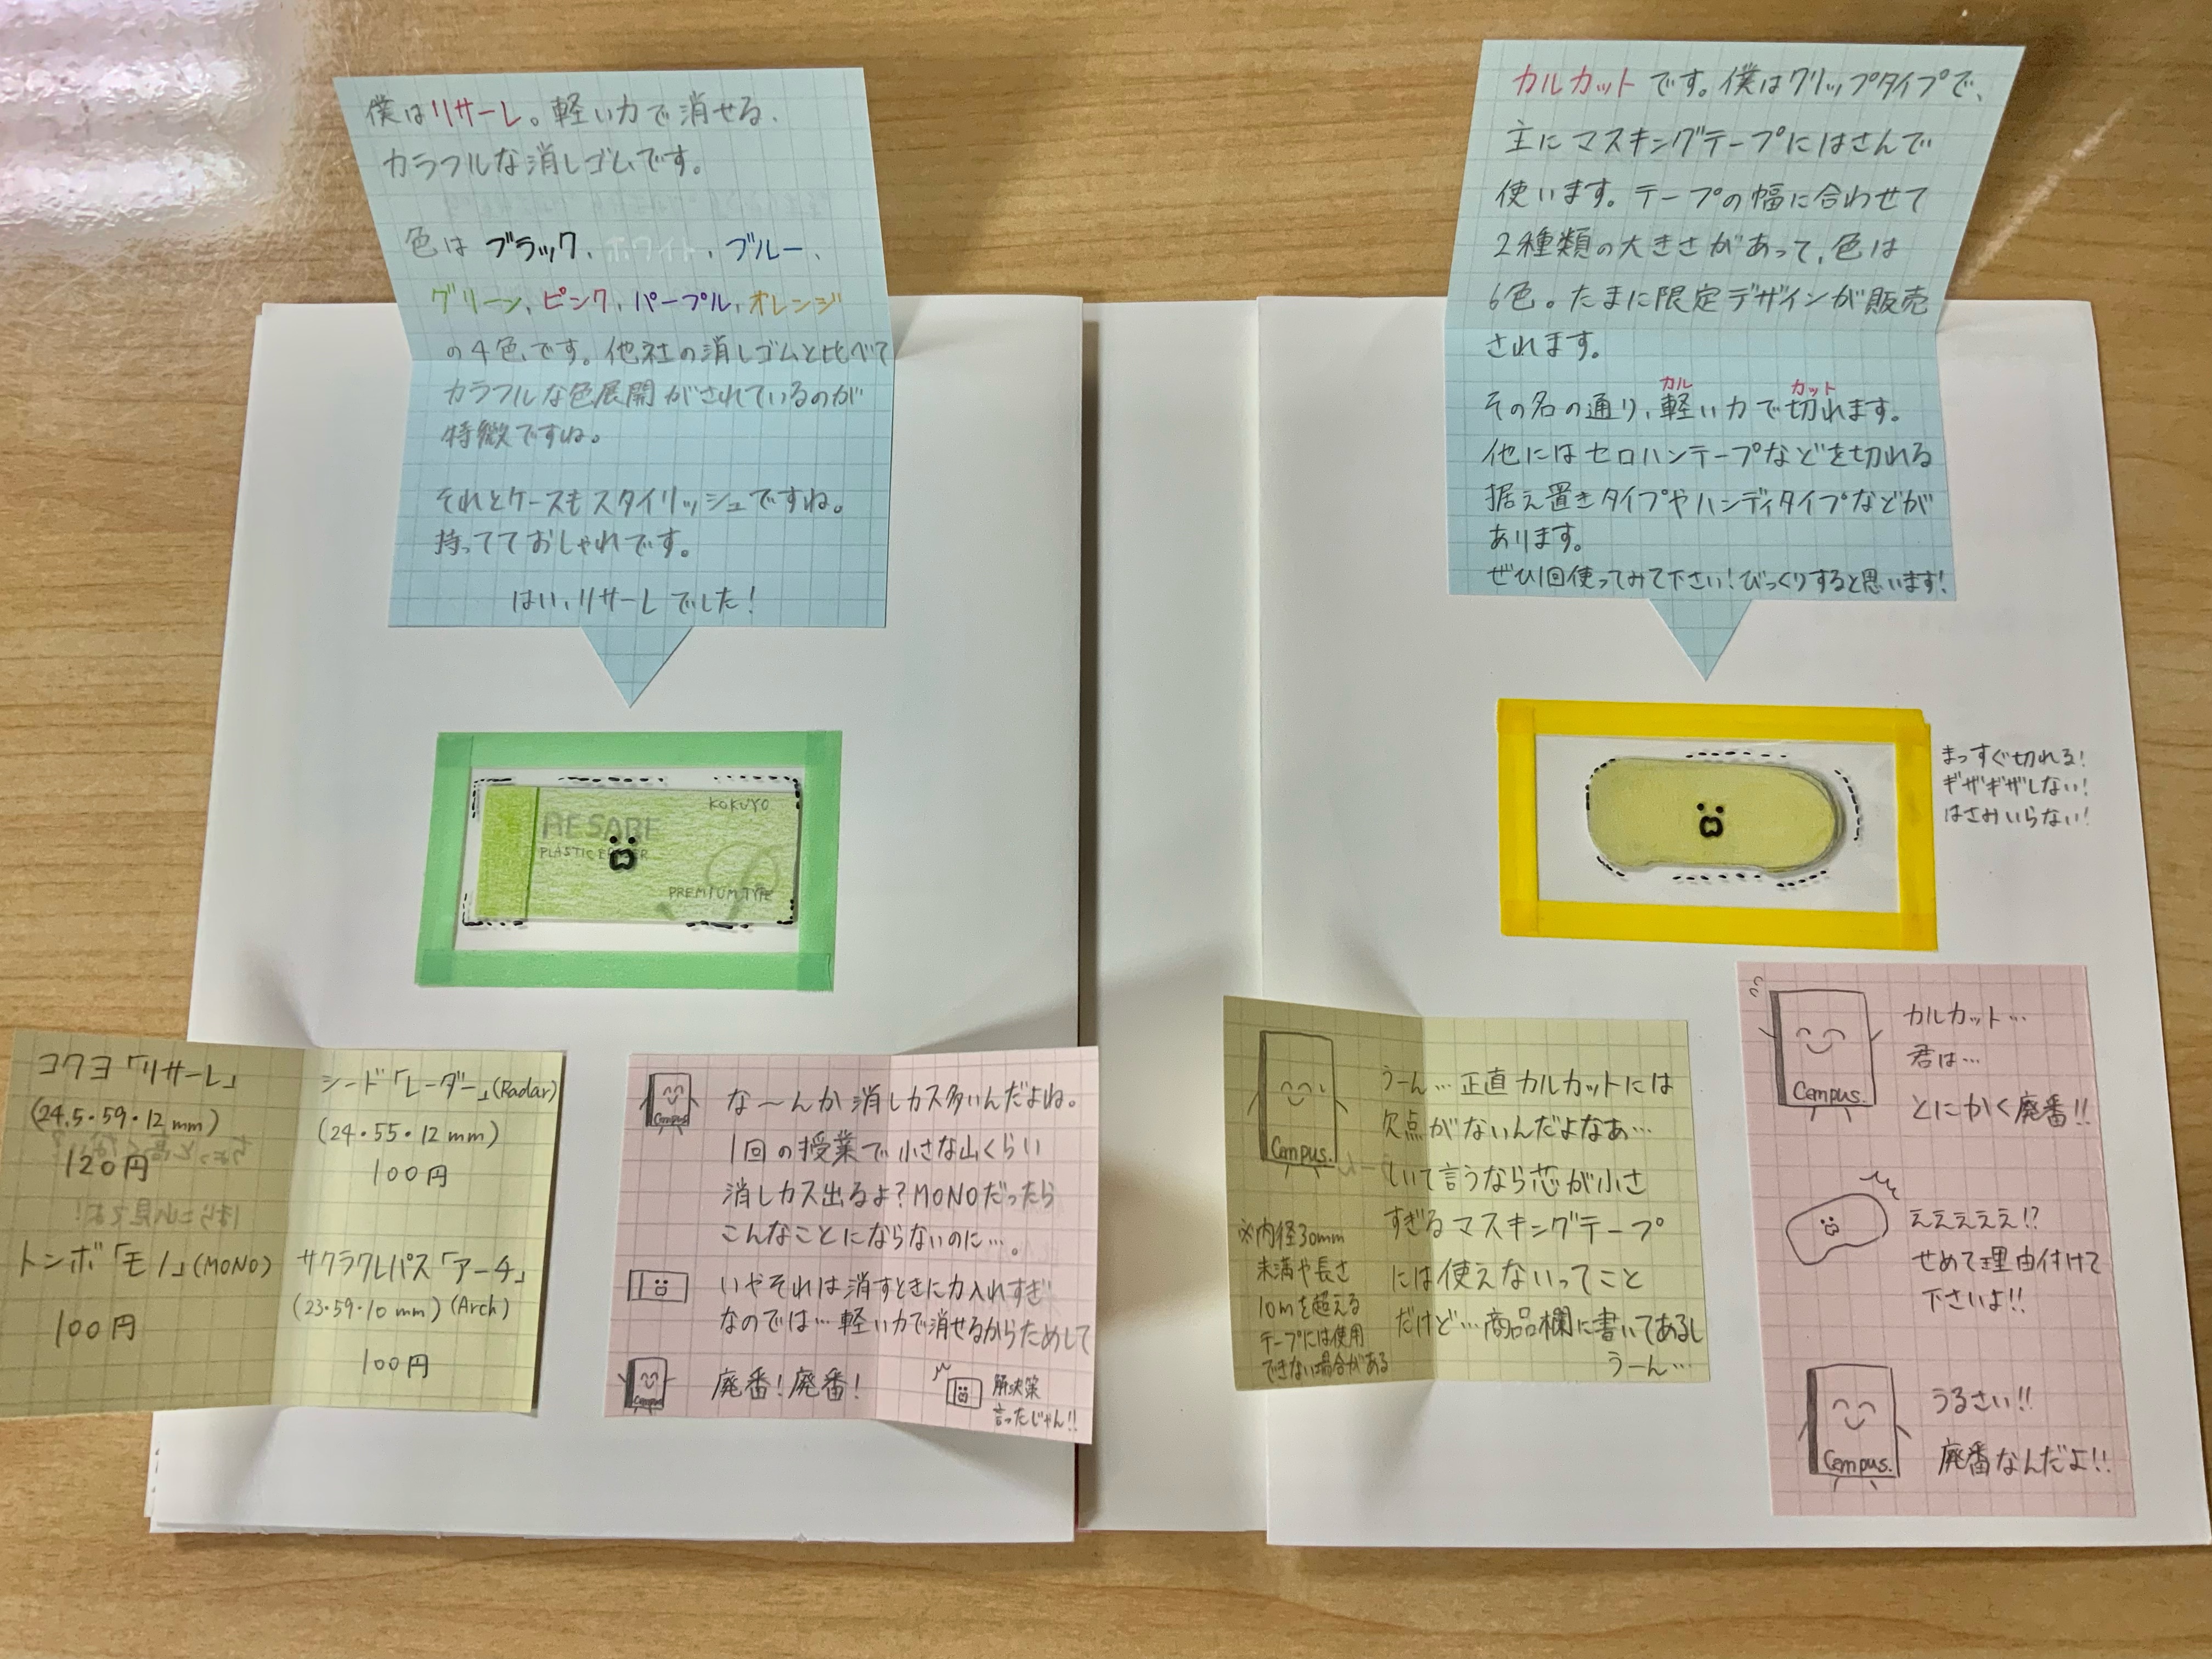 僕はリサーレ。軽い力で消せる、
カラフルな消しゴムです。
色は ブラック、ホワイト、ブルー、
グリーン、ピンク、パープル、オレンジ
の4色です。他社の消しゴムと比べて
カラフルな色展開がされているのが
特徴ですね。
それとケースもスタイリッシュですね。
持ってておしゃれです。
はい、リサーレでした！
KOKUYO
RESARE
PLASTIC ERASER
PREMIUM TYPE
コクヨ「リサーレ」
(24.5・59・12mm)
120円
トンボ「モノ」(MONO)
100円
シード「レーダー」(Radar)
(24・55・12mm)
100円
サクラクレパス「アーチ」
(23・59・10mm)(Arch)
100円
Campus
な〜んか消しカス多いんだよね。
1回の授業で小さな山くらい
消しカス出るよ？MONOだったら
こんなことにならないのに…。
いやそれは消すときに力入れすぎ
なのでは…軽い力で消せるからためして
Campus
廃番！廃番！
解決策
言ったじゃん！！
カルカットです。僕はクリップタイプで、
主にマスキングテープにはさんで
使います。テープの幅に合わせて
2種類の大きさがあって、色は
6色。たまに限定デザインが販売
されます。
カル カット
その名の通り、軽い力で切れます。
他にはセロハンテープなどを切れる
据え置きタイプやハンディタイプなどが
あります。
ぜひ1回使ってみて下さい！びっくりすると思います！
まっすぐ切れる！
ギザギザしない！
はさみいらない！
Campus.
うーん…正直カルカットには
欠点がないんだよなあ…
しいて言うなら芯が小さ
すぎるマスキングテープ
には使えないってこと
だけど…商品欄に書いてあるし
うーん…
※内径30mm
未満や長さ
10mを超える
テープには使用
できない場合がある
Campus.
カルカット…
君は…
とにかく廃番！！
えええええ！？
せめて理由付けて
下さいよ！！
Campus.
うるさい！！
廃番なんだよ！！